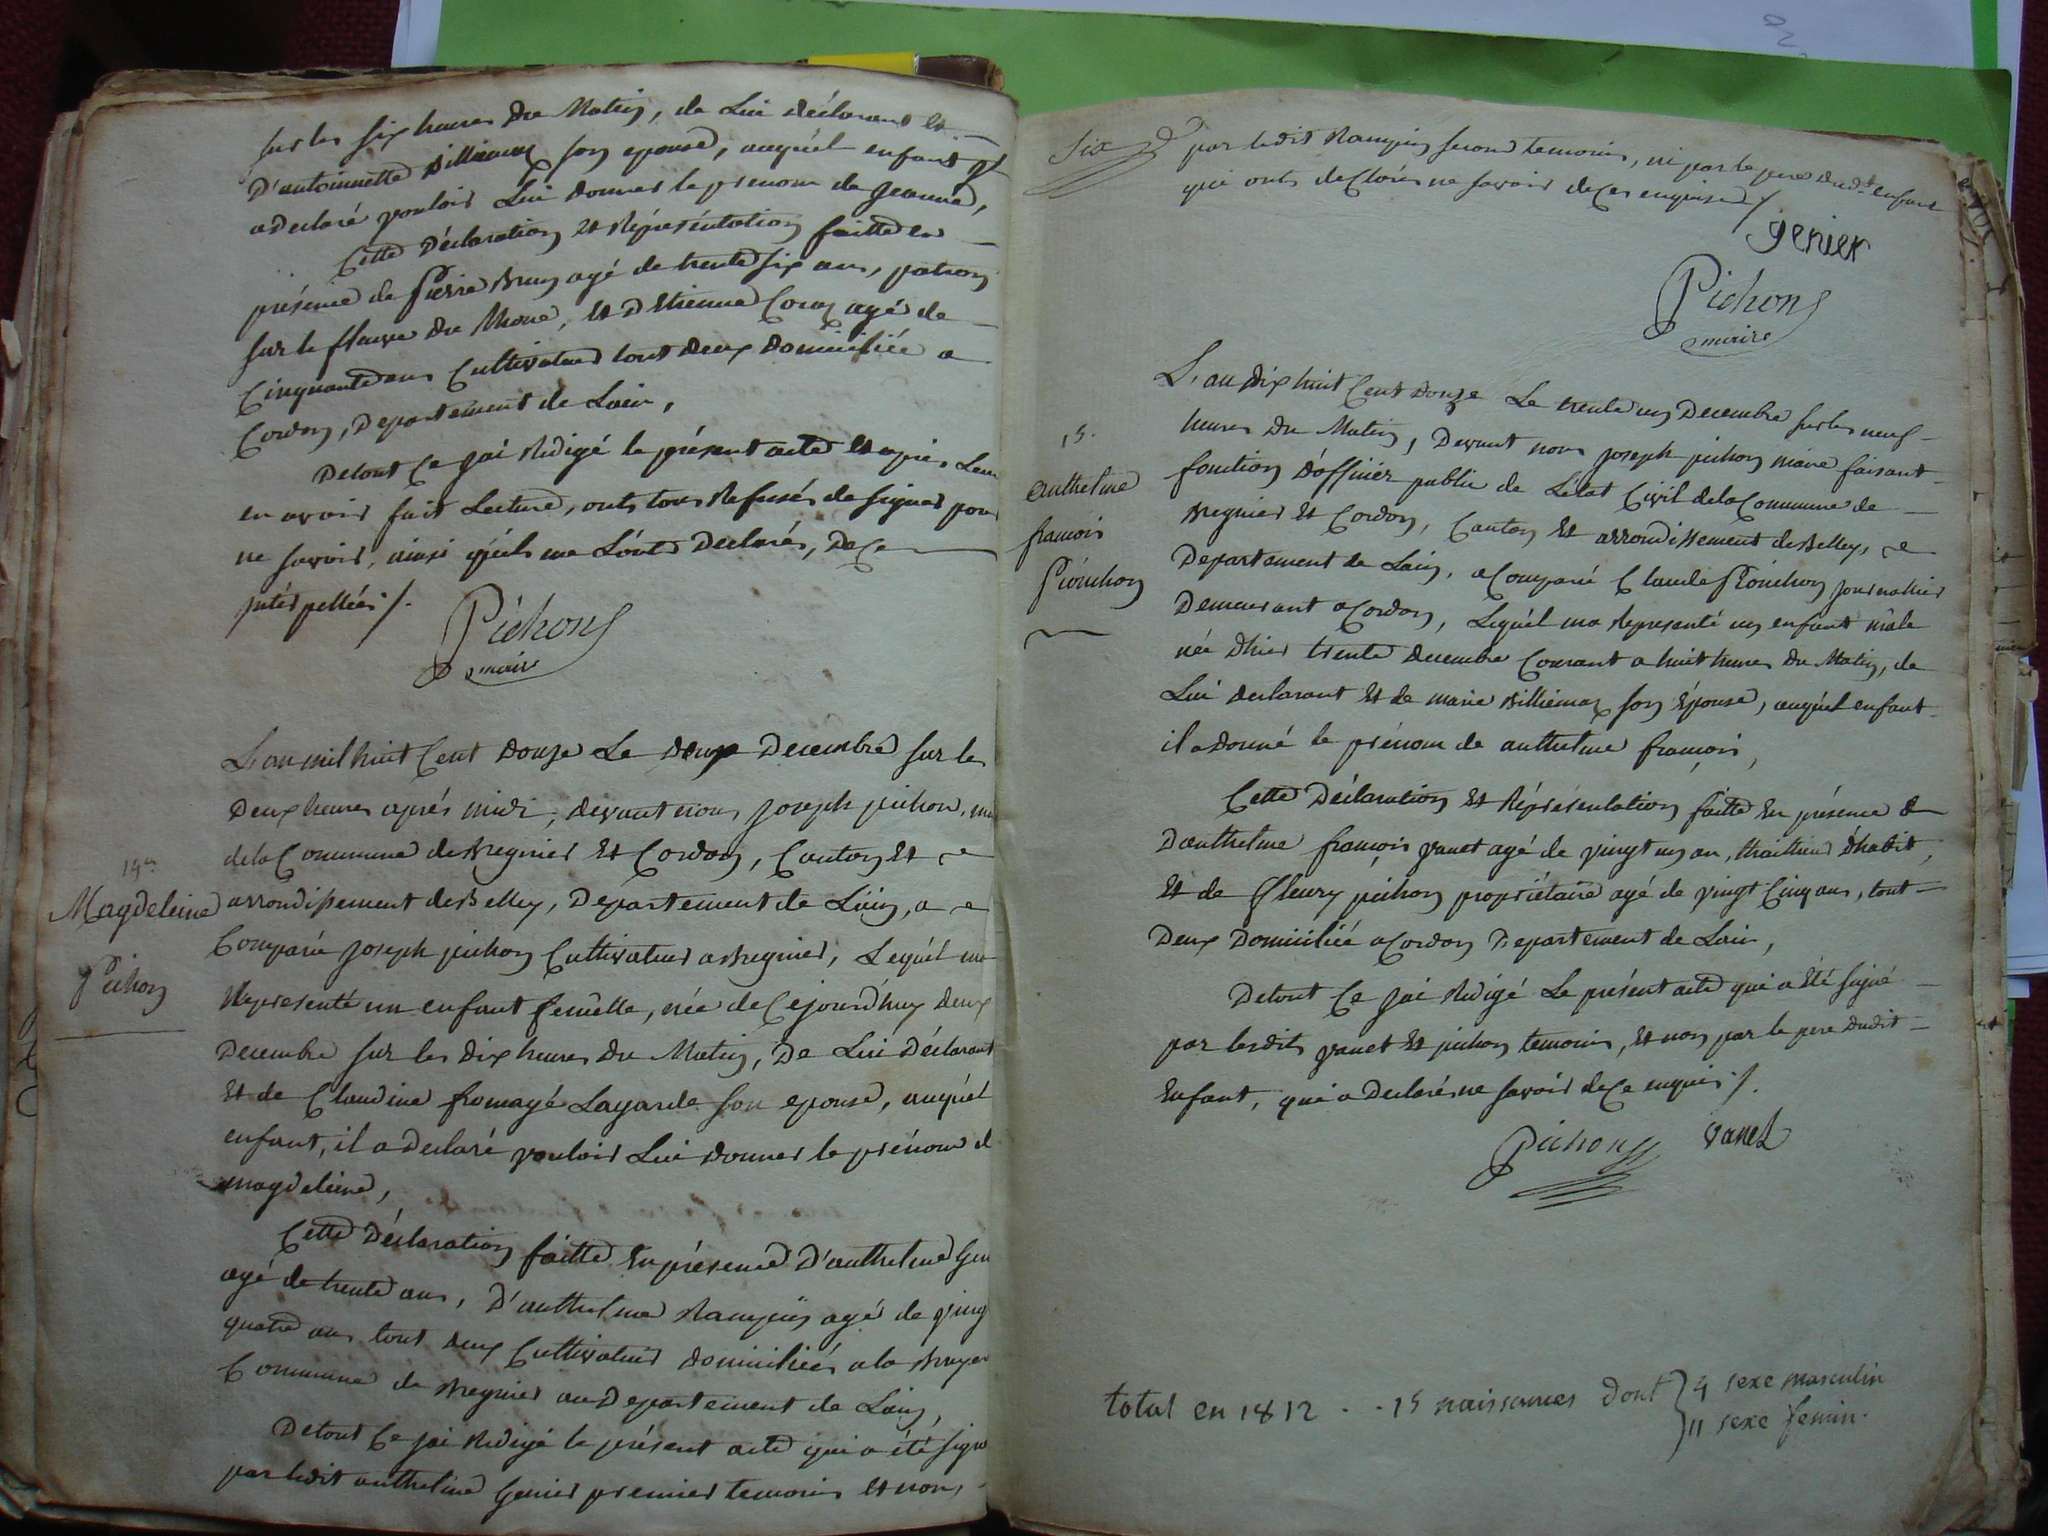 sur les six heures du Matin, de Lui déclarant et
D'antoinette Billiemaz son epouse, auquel enfant il
a declaré vouloir Lui donner le prenom de jeanne,
Cette Déclaration et Représentation faitte en
présence de Pierre Brun agé de trente six ans, patron
sur le fleuve du Rhone, et D'Etienne Cour agé de
Cinquante ans Cultivateur tout deux domiciliée a
Cordon, Departement de Lain,
De tout Ce jai Rédigé le présent acte et après Leur
en avoir fait Lecture, onts tous Refusés de signer pour
ne savoir, ainsi qu'ils me L'ont Déclarés, De Ce
intérpellées /.
Pichon
maire
L'an mil huit Cent Douze Le Deux Decembre sur les
Deux heures après midi, devant nous Joseph pichon, mai
de la Commune de Bregnier Et Cordon, Canton Et
arrondissement de Belley, Département de L'ain, a
Comparu Joseph pichon Cultivateur a Bregnier, Lequél ma
Représenté un enfant femelle, née de Cejourd'huy deux
Decembre sur les dix heures du Matin, De Lui Déclarant
Et de Claudine fromagé Lagarde son epouse, auquél
enfant, il a Declaré vouloir Lui donner le prénom d
magdeleine,
14e
Magdeleine
Pichon
Cette Déclaration faitte En présence D'anthelme Gen
agé de trente ans, D'anthelme Rampin agé de ving
quatre ans tout deux Cultivateur domiciliés a la Bruyer
Commune de Bregnier au Departement de Lain,
De tout Ce jai Rédigé le présent acte qui a été signé
par ledit anthelme Genier premier temoin et non,
Six
par ledit Rampin second temoin, ni par le pere dud.t enfant
qui onts declarés ne savoir de Ces enquised /
genier
Pichon
maire
15.
anthelme
francois
Pionchon
L'an dix huit Cent Douze Le trente un Decembre sur les neuf
heures du Matin, Devant nous Joseph pichon maire faisant
fonction D'officier public de L'état Civil de la Commune de
Bregnier Et Cordon, Canton Et arrondissement de Belley,
Departement de Lain, a Comparu Claude Pionchon journalier
Demeurant a Cordon, Lequél ma Representé un enfant mâle
née Dhier trente decembre Courant a huit heures du Matin, de
Lui declarant Et de marie Billiemaz son Epouse, auquél enfant
il a donné le prénom de anthelme francois,
Cette Déclaration Et Réprésentation faitte En présence
D'anthelme francois vanet agé de vingt un an, thailleur D'habit,
Et de fleury pichon propriétaire agé de vingt Cinq ans, tout
Deux Domiciliée a Cordon Departement de Lain,
De tout Ce jai Rédigé Le présent acte qui a été signé
par lesdits vanet Et pichon temoins, Et non par le pere dudit
Enfant, qui a Declaré ne savoir de Ce enquis /.
Pichon vanet
total en 1812 .. 15 naissances dont } 4 sexe masculin
11 sexe femin.